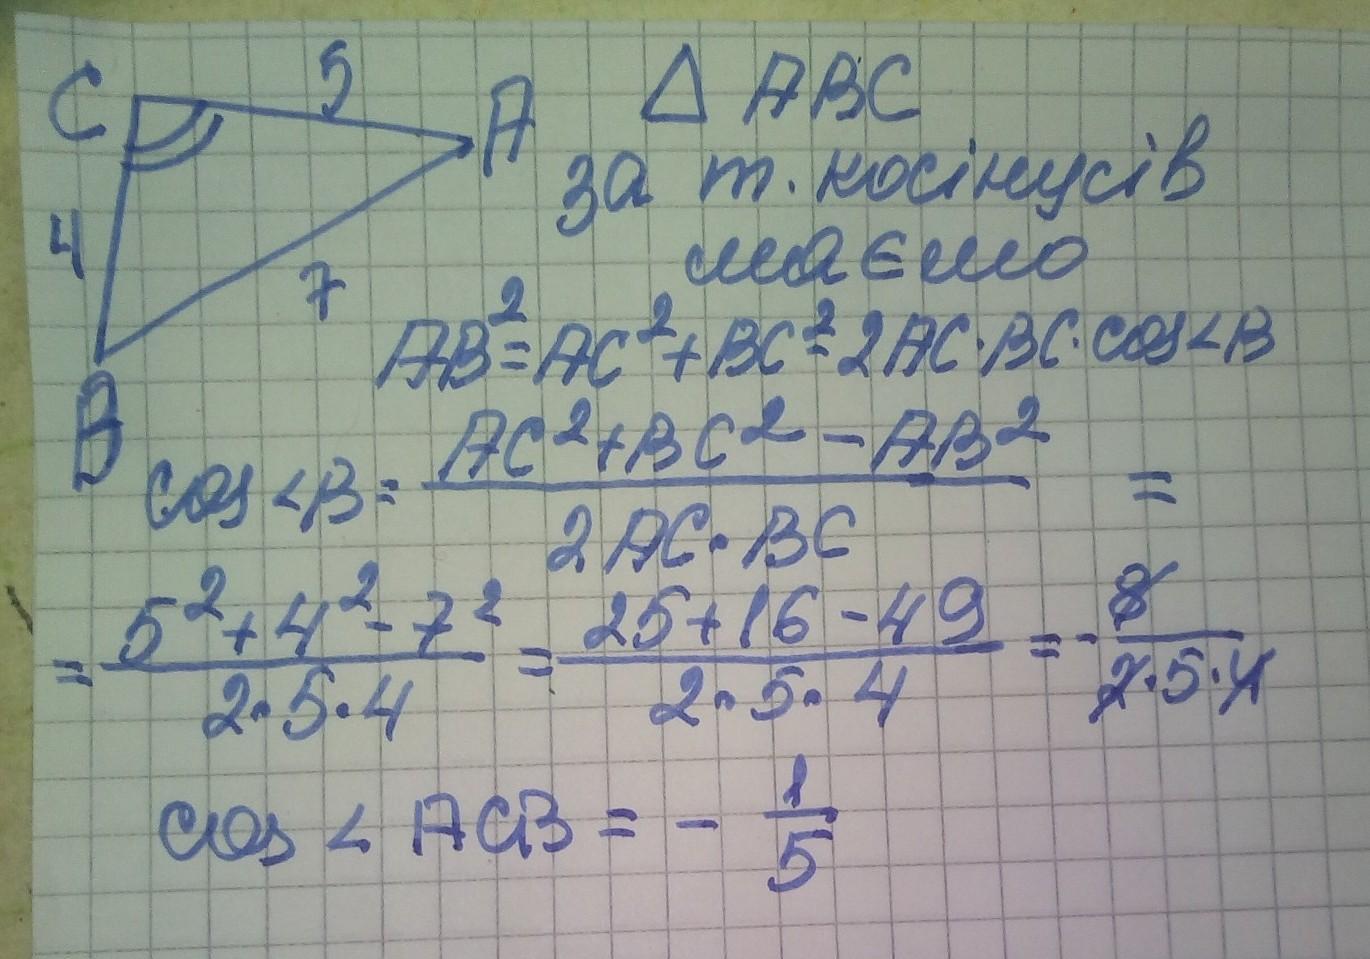 C 5 A
4
7
B
Δ ABC
за т. косінусів
маємо
AB² = AC² + BC² - 2AC·BC·cos<B
cos<B = (AC² + BC² - AB²) / (2AC·BC) =
= (5² + 4² - 7²) / (2·5·4) = (25 + 16 - 49) / (2·5·4) = - 8 / (2·5·4)
cos < ACB = - 1/5